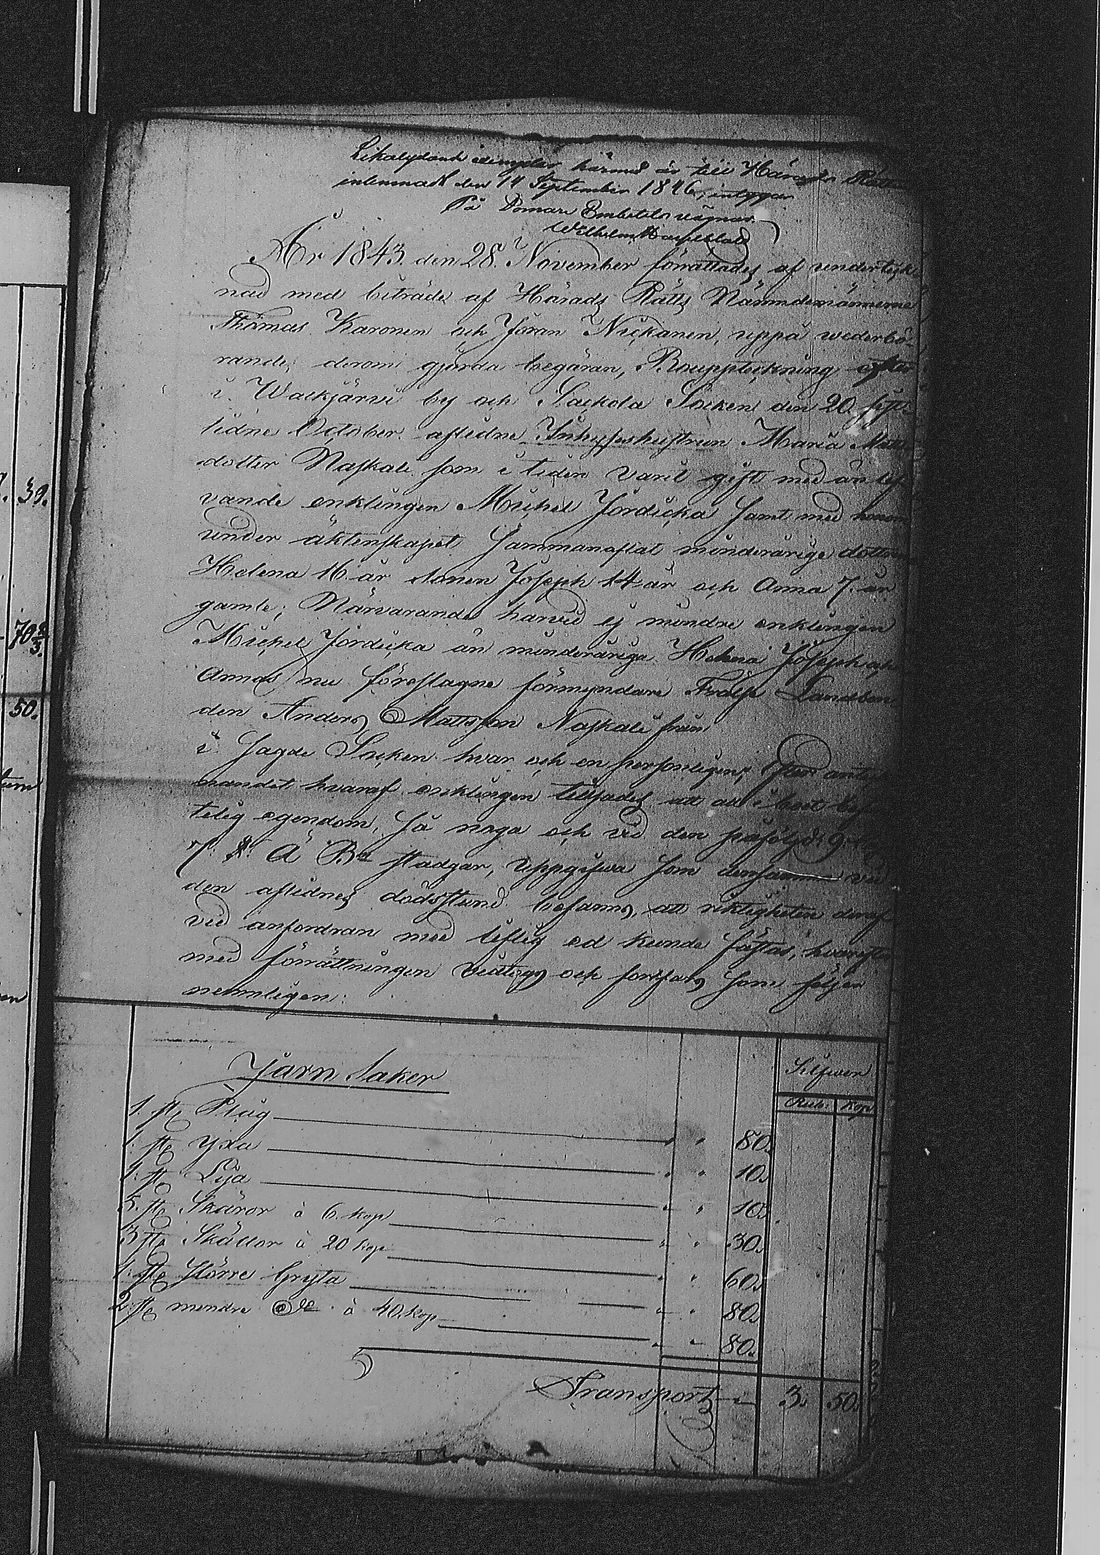 Likalydand exemplar härmed är till Härads Rätten
inlemnadt den 14 September 1846, intygar
På Domare Embetets vägnar
Wilhelm
År 1843 den 28 November förrättades af underteck-
nad med biträde af Härads Rätts Nämndemännerne
Thomas Karonen och Jöran Nickanen, uppå wederbö-
randes derom gjorda begäran, Bouppteckning efter
i Walkjärvi by och Sackola Socken den 20
lidne October aflidne Inhyseshustrun Maria Matts
dotter Naskali som i tiden varit gift med än lef-
vande enklingen Michel Jördicka samt med honom
under äktenskapet sammanaflat minderårige dottren
Helena 16 år sonen Joseph 14 år och Anna 7 år
gamle; Närvarande härvid ej mindre enklingen
Michel Jördicka än minderåriga Helena Joseph och
Annas nu föreslagne förmyndare Landbon-
den Anders Mattsson Naskali från
i Socken hvar och en personligen
mandet hvaraf enklingen tillsades att all
telig egendom, så noga och vid den påföljd 9
7 §. Ä Bn stadgar, uppgifwa som densamma vid
den aflidnes dödsstund befanns, att riktigheten deraf
vid anfordran med liflig ed kunde fästas, hvarefter
med förrättningen vidtogs och fortfors som följer
nemnligen:
Silfwer
Järn Saker
Rub. Kop
1 st Plog " " 80.
1 st Yxa " " 10.
1 st Lija " " 10.
5 st Skäror à 6 kop " " 30.
3 st Skällor à 20 kop " " 60.
1 st större Gryta " " 80.
2 st mindre do à 40 kop " " 80.
Transport 3. 50.
30.
70 2/3
50.